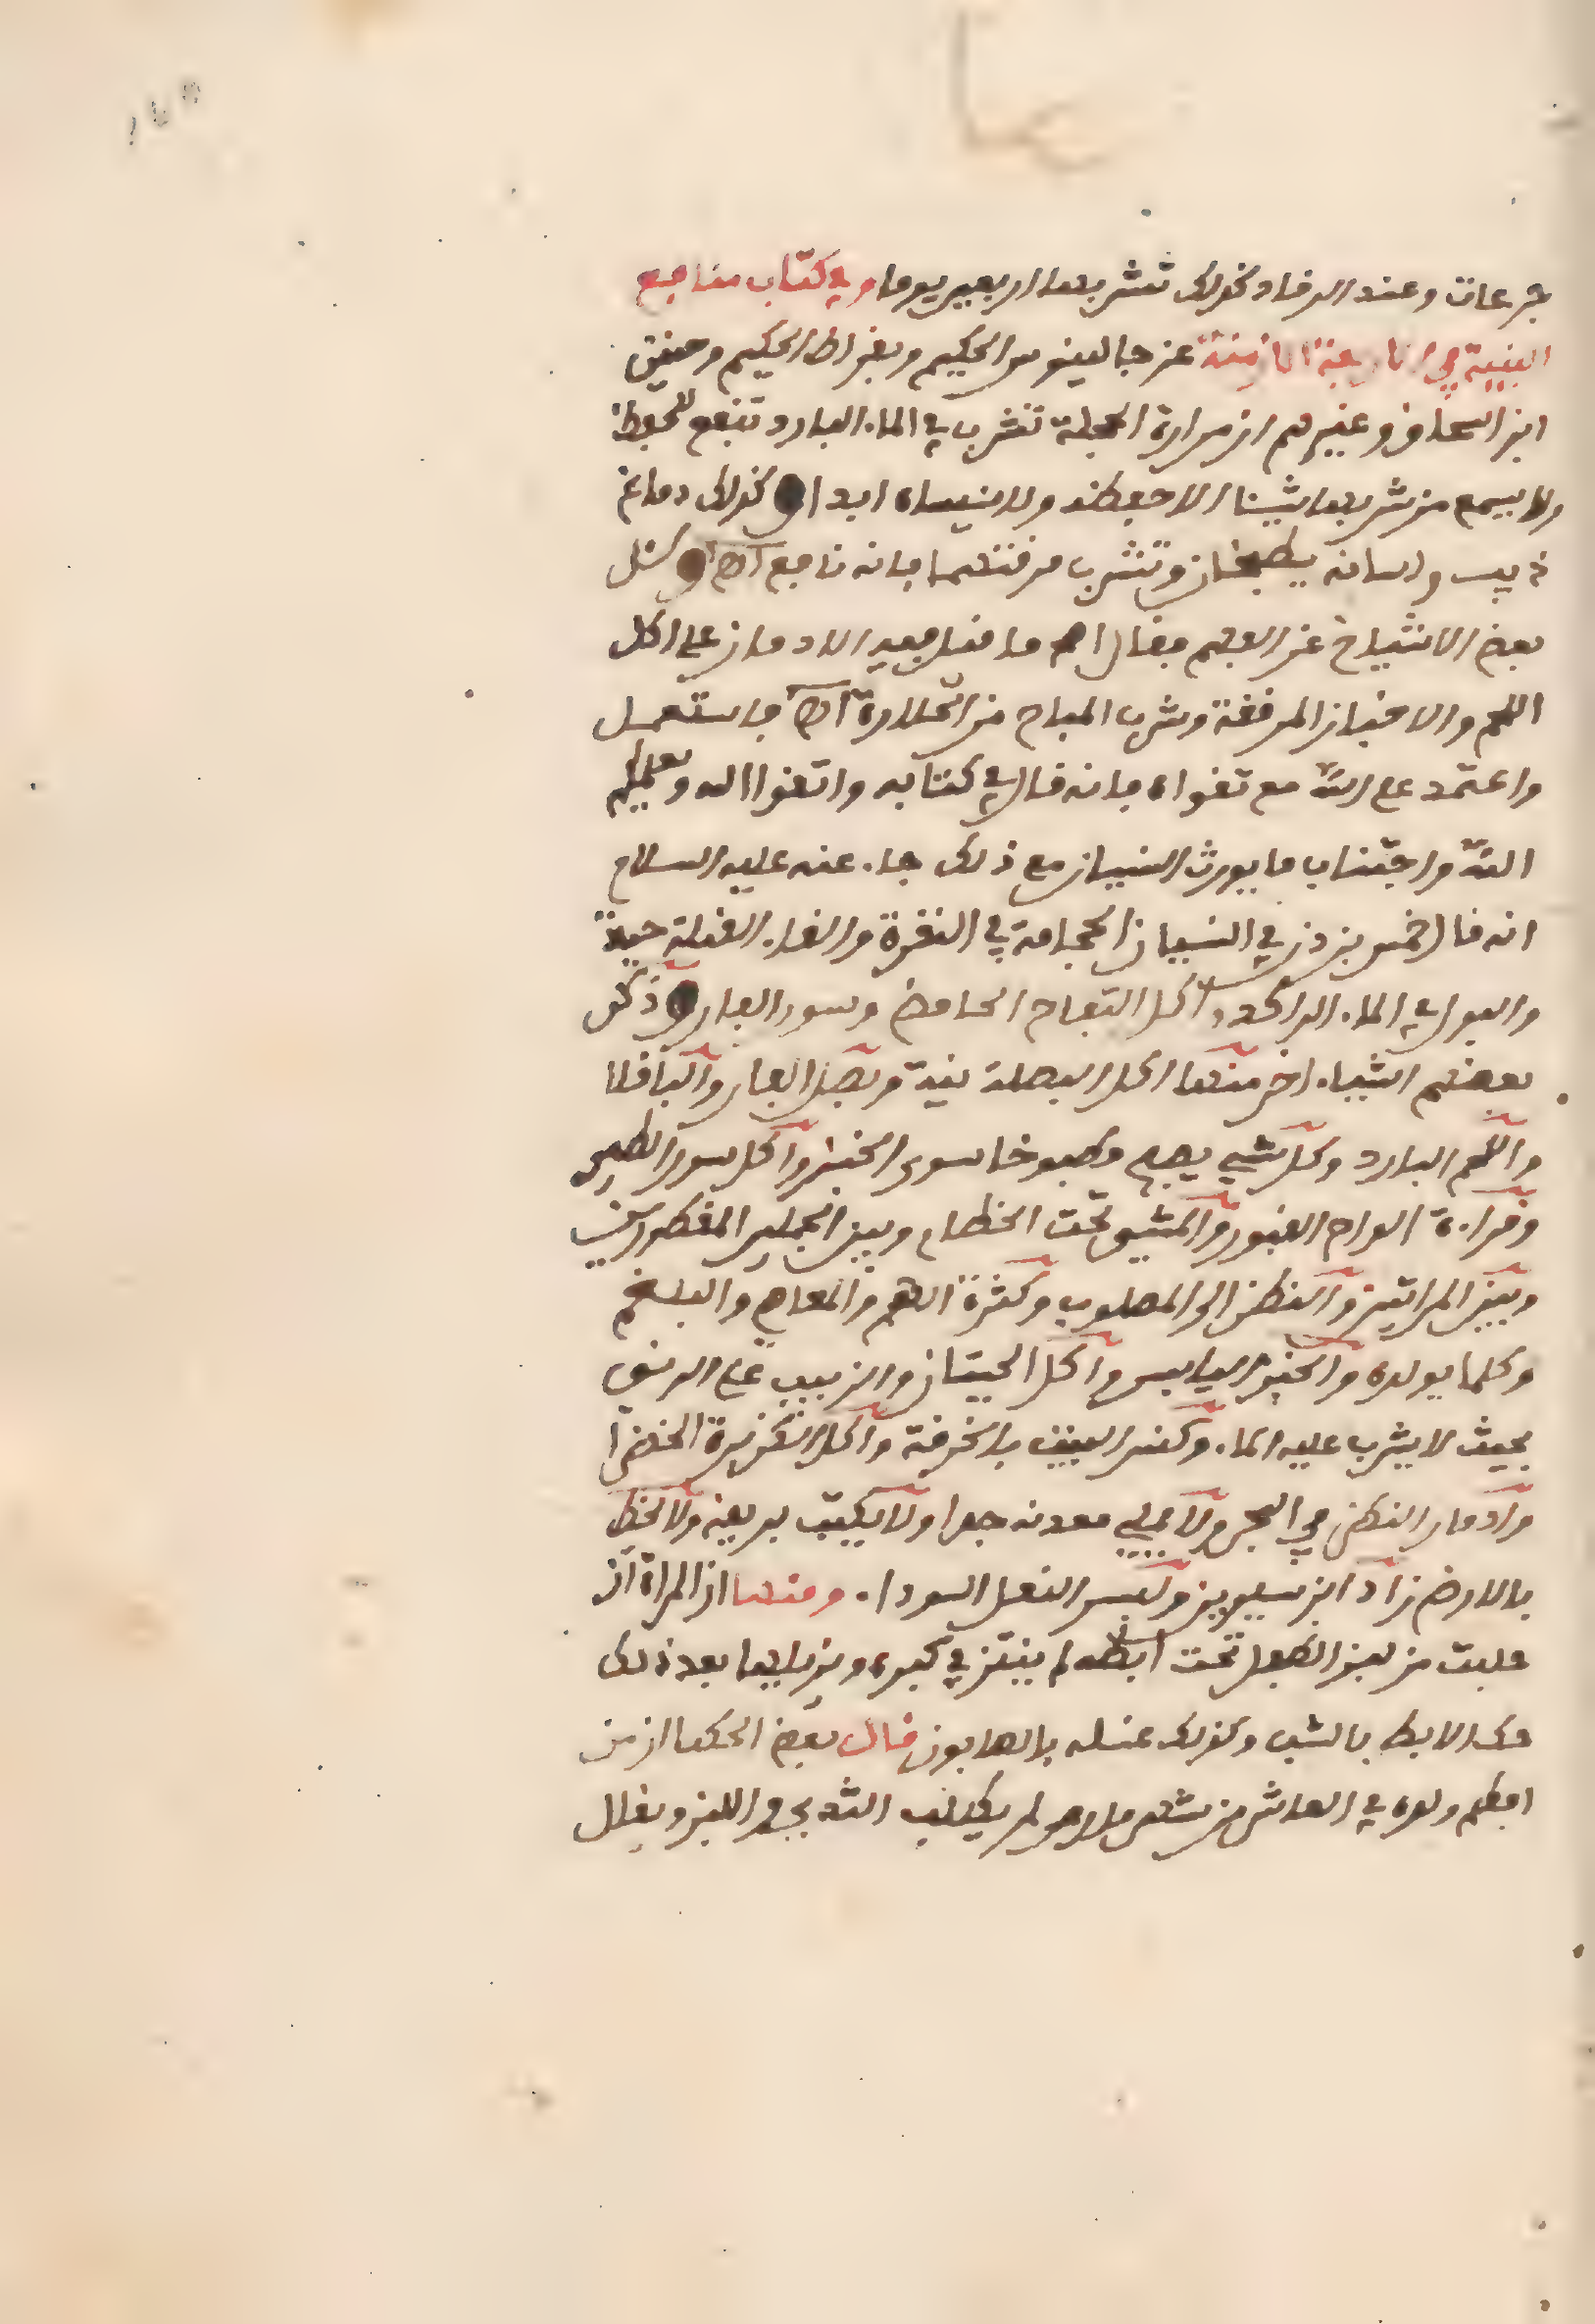 جرعات وعند الرقاد كذلك تشربها اربعين يوما وفي كتاب منافع
البنية في الاربعة الازمنة عن جالينوس الحكيم وبقراط الحكيم وحنين
ابن اسحاق وغيرهم ان مرارة الحجلة تشرب في الماء البارد تنفع للحفظ
ولا يسمع من شربها شيئا الا حفظه ولا ينساه ابدا وكذلك دماغ
ولسانه يطبخان وتشرب مرقتهما فانه نافع اه وسئل
بعض الاشياخ عن الفهم فقال اهم ما قيل فيه الادمان على اكل
اللحم والاخباز المرققة وشرب المباح من الحلاوة اه فاستعمل
واعتمد على الله مع تقواه فانه قال في كتابه واتقوا الله ويعلمكم
الله واجتناب ما يورث النسيان مع ذلك جاء عنه عليه السلام
انه قال خمس يزدن في النسيان الحجامة في النقرة والقاء القملة حية
والبول في الماء الراكد واكل التفاح الحامض وسور الفار وذكر
بعضهم اشياء اخر منها اكل البصلة نية وبصل الفار والباقلا
واللحم البارد وكل شيء يصبح مطبوخا سوى الخبز واكل سور الطير
وقراءة الواح القبور والمشي تحت الخطام وبين الجملين المقطورين
وبين المراتين والنظر الى المصلوب وكثرة الهم والمعاصي والبلغم
وكلما يولده والخبز اليابس واكل الحيتان والزبيب على الريق
بحيث لا يشرب عليه الماء وكنس البيت بالخرقة واكل الكزبرة الخضرا
وادمان النظر في البحر ولا يملي معدته جدا ولا يكتب بريقه ولا يخط
بالارض زاد ابن سيرين ولبس النعل السوداء ومنها ان المراة ان
حلبت من لبن الطفل تحت ابطه لم ينتن في كبره ويزيلهما بعد ذلك
حك الابط بالشب وكذلك غسله بالصابون قال بعض الحكما ان من
افطم ولده في العاشر من شهر مارس لم يطلب الثدي واللبن ويقلل